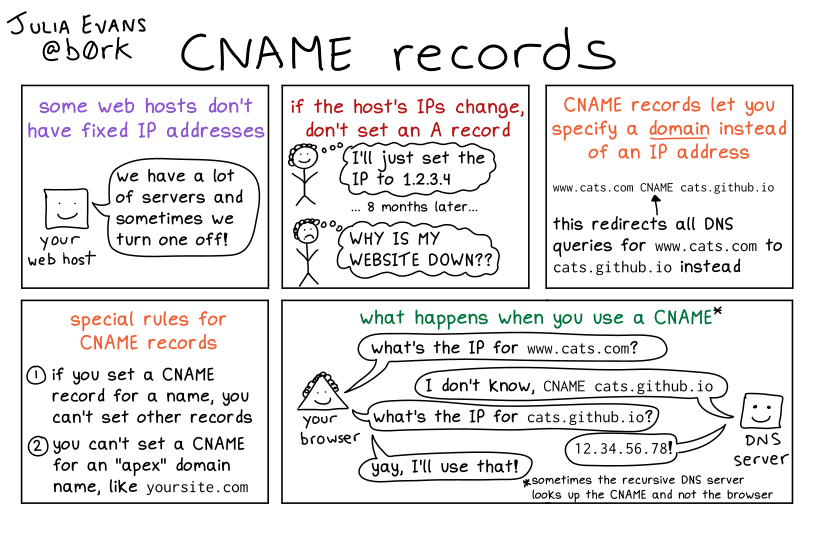 JULIA EVANS
@b0rk
CNAME records
some web hosts don't
have fixed IP addresses
we have a lot
of servers and
sometimes we
turn one off!
your
web host
if the host's IPs change,
don't set an A record
I'll just set the
IP to 1.2.3.4
... 8 months later...
WHY IS MY
WEBSITE DOWN??
CNAME records let you
specify a domain instead
of an IP address
www.cats.com CNAME cats.github.io
this redirects all DNS
queries for www.cats.com to
cats.github.io instead
special rules for
CNAME records
① if you set a CNAME
record for a name, you
can't set other records
② you can't set a CNAME
for an "apex" domain
name, like yoursite.com
what happens when you use a CNAME*
what's the IP for www.cats.com?
I don't know, CNAME cats.github.io
your
browser
what's the IP for cats.github.io?
DNS
server
12.34.56.78!
yay, I'll use that!
*sometimes the recursive DNS server
looks up the CNAME and not the browser